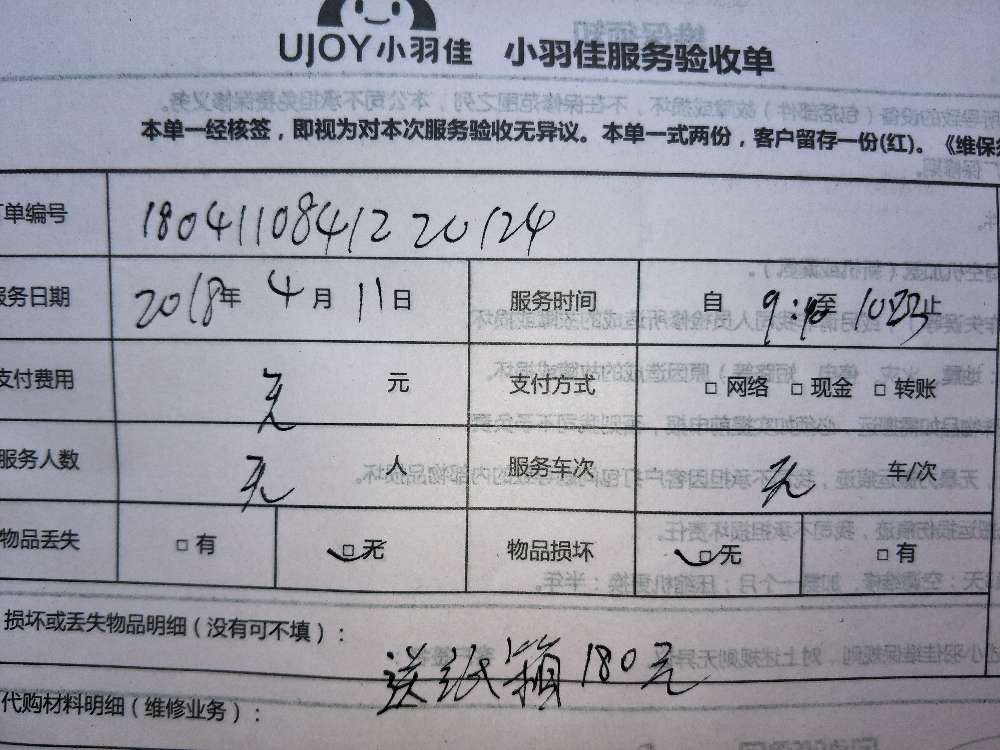 UJOY小羽佳 小羽佳服务验收单
本单一经核签，即视为对本次服务验收无异议。本单一式两份，客户留存一份(红)。《维保
单编号 18041108412 20124
服务日期 2018年 4月 11日 服务时间 自 9:40至 1023止
支付费用 无 元 支付方式 □ 网络 □ 现金 □ 转账
服务人数 无 人 服务车次 无 车/次
物品丢失 □ 有 □ 无 物品损坏 □ 无 □ 有
损坏或丢失物品明细（没有可不填）：
送纸箱180元
代购材料明细（维修业务）：